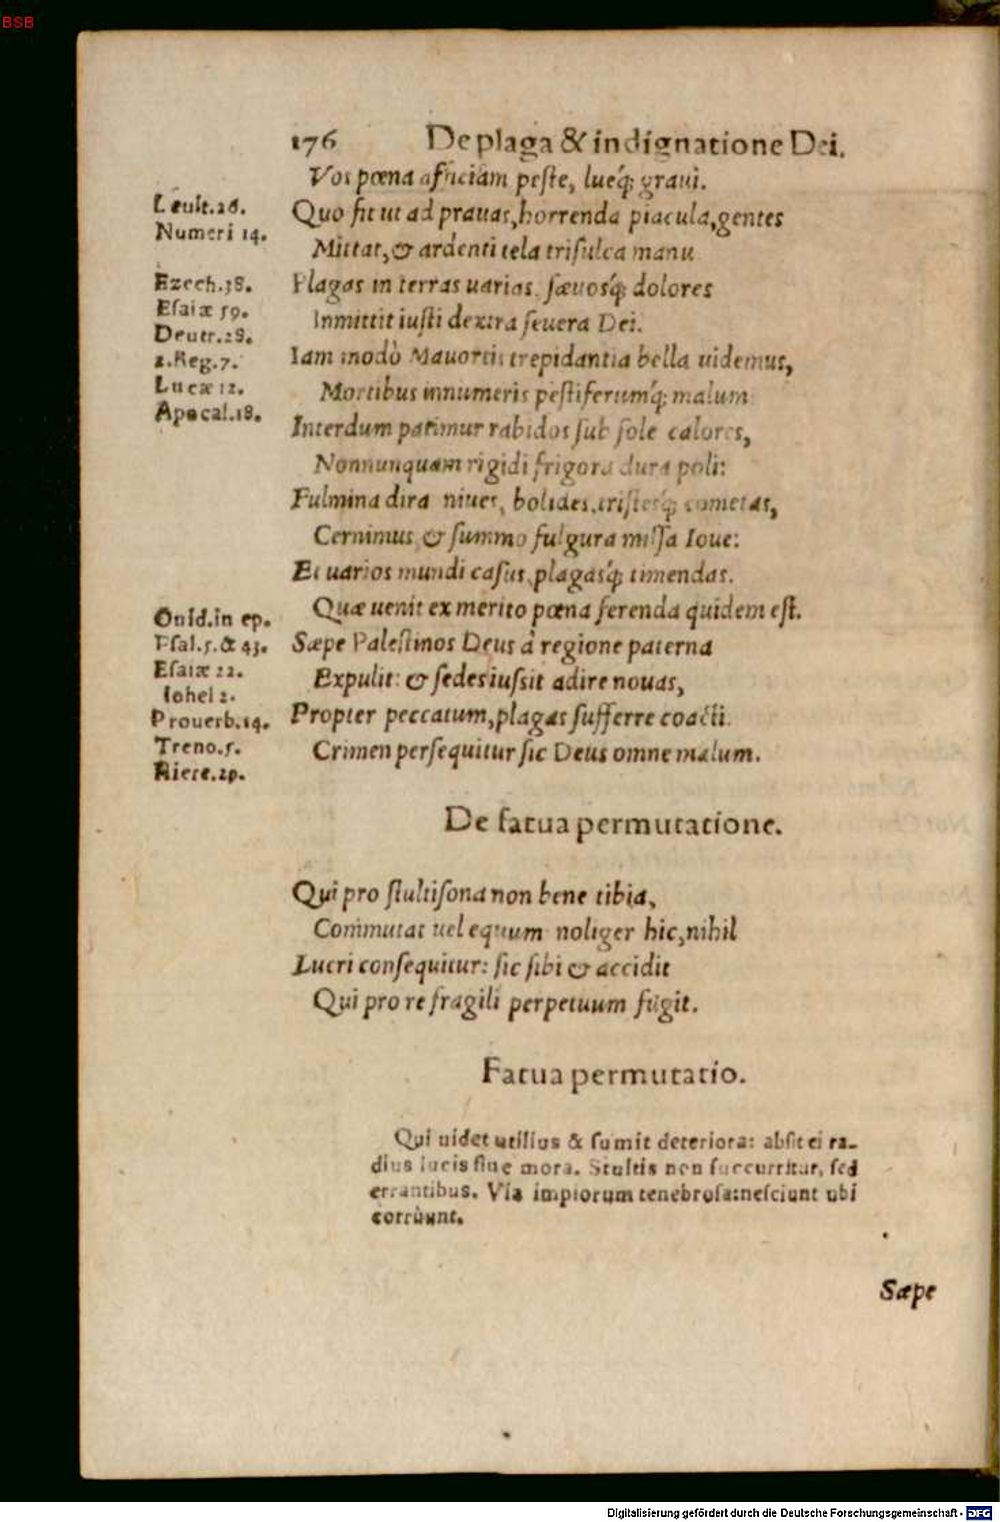 BSB
176 De plaga & indignatione Dei.
Vos pœna afficiam peſte, lueq́; graui.
Leuit.26.
Quo fit ut ad prauas, horrenda piacula, gentes
Numeri 14.
Mittat, & ardenti tela triſulca manu
Ezech.38.
Plagas in terras uarias, ſæuosq́; dolores
Eſaiæ 59.
Inmittit iuſti dextra ſeuera Dei.
Deutr.28.
2.Reg.7.
Iam modò Mauortis trepidantia bella uidemus,
Lucæ 12.
Mortibus innumeris peſtiferumq́; malum:
Apocal.18.
Interdum patimur rabidos ſub ſole calores,
Nonnunquam rigidi frigora dura poli:
Fulmina dira niues, bolides, triſtesq́; cometas,
Cernimus, & ſummo fulgura miſſa Ioue:
Et uarios mundi caſus, plagasq́; timendas.
Quæ uenit ex merito pœna ferenda quidem eſt.
Ouid.in ep.
Pſal.5.& 43.
Sæpe Paleſtinos Deus à regione paterna
Eſaiæ 22.
Expulit: & ſedes iuſsit adire nouas,
Iohel 2.
Prouerb.14.
Propter peccatum, plagas ſufferre coacti.
Treno.5.
Crimen perſequitur ſic Deus omne malum.
Hiere.29.
De fatua permutatione.
Qui pro ſtultiſona non bene tibia,
Commutat uel equum noliger hic, nihil
Lucri conſequitur: ſic ſibi & accidit
Qui pro re fragili perpetuum fugit.
Fatua permutatio.
Qui uidet utilius & ſumit deteriora: abſit ei ra-
dius lucis ſine mora. Stultis non ſuccurritur, ſed
errantibus. Via impiorum tenebroſa: neſciunt ubi
corrùunt.
Sæpe
Digitalisierung gefördert durch die Deutsche Forschungsgemeinschaft - DFG